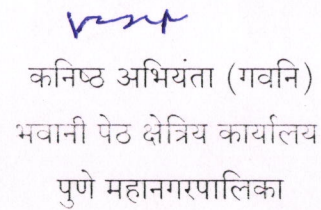 कनिष्ठ अभियंता (गवनि)
भवानी पेठ क्षेत्रिय कार्यालय
पुणे महानगरपालिका